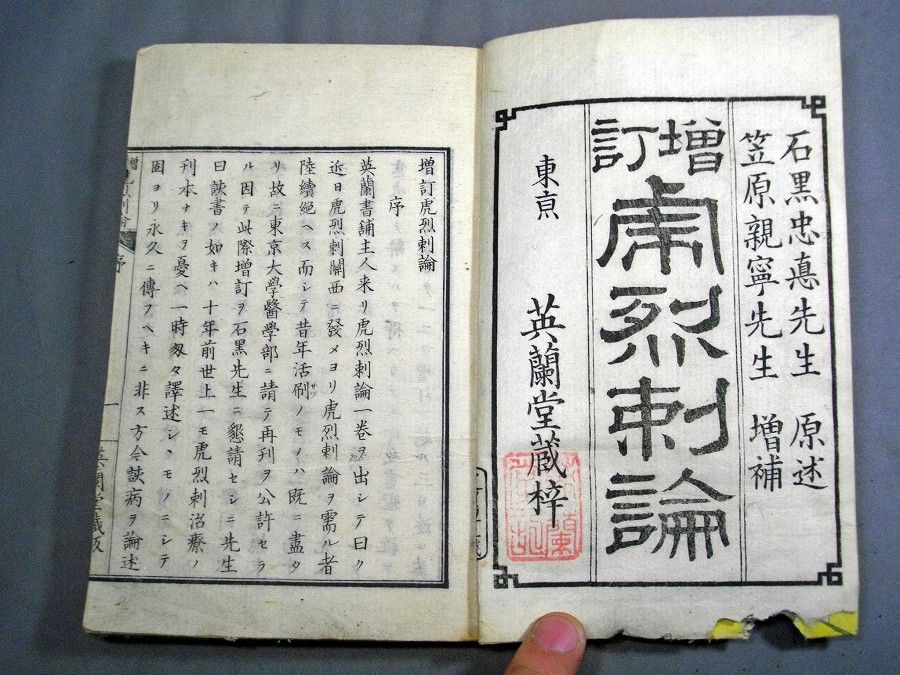 石黒忠悳先生 原述
笠原親寧先生 増補
増訂
虎烈刺論
東京 英蘭堂蔵梓
増訂虎烈刺論
序
英蘭書舗主人来リ虎烈刺論一巻ヲ出シテ曰ク
近日虎烈刺関西ニ發メヨリ虎烈刺論ヲ需ル者
陸續絶ヘス而シテ昔年活刷ノモノハ既ニ盡タ
リ故ニ東京大學醫學部ニ請テ再刊ヲ公許セラ
ル因テ此際増訂ヲ石黒先生ニ懇請セシニ先生
曰談書ノ如キハ十年前世上一モ虎烈刺治療ノ
刊本ナキヲ憂ヘ一時匆々譯述シタモノニシテ
固ヨリ永久ニ傳フヘキニ非ス方今談病ヲ論述
序
一
英蘭堂蔵版